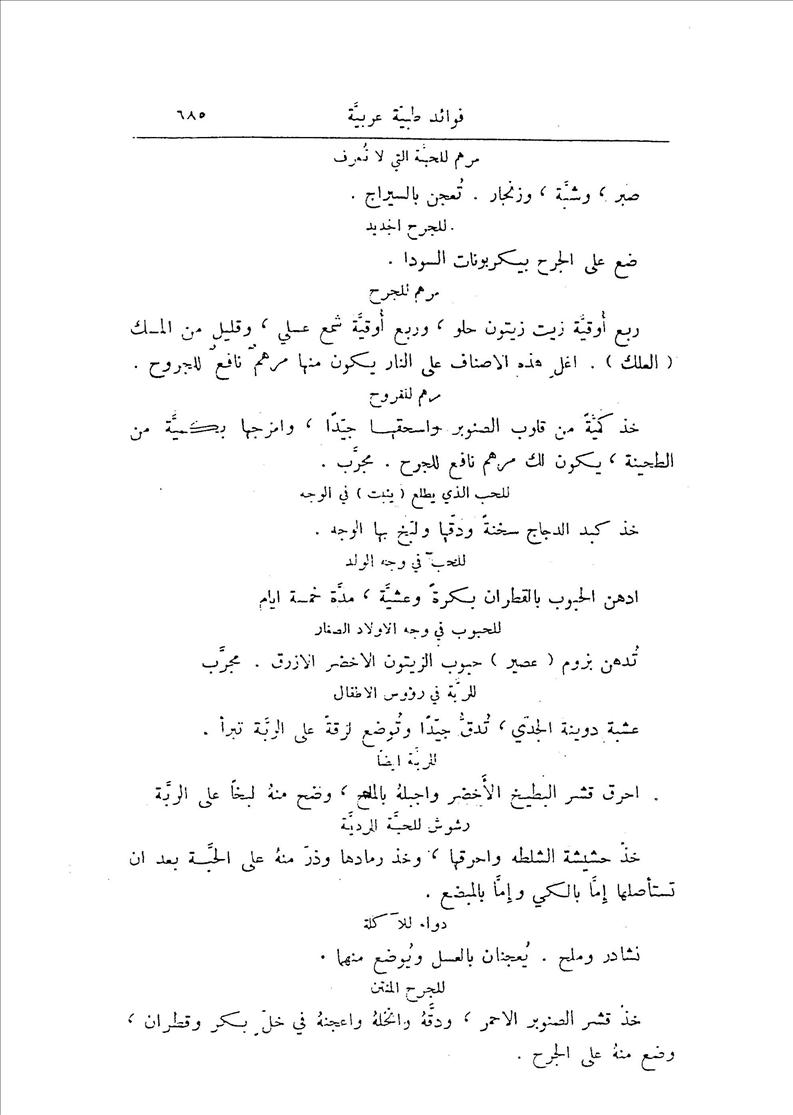 فوائد طبيَّة عربيَّة ٦٨٥
مرهم للحبَّة التي لا تُعرف
صبر ، وشبَّة ، وزنجار . تُعجن بالسيراج .
للجرح الجديد
ضع على الجرح بيكربونات السودا .
مرهم للجرح
ربع أُوقيَّة زيت زيتون حلو ، وربع أُوقيَّة شمع عسلي ، وقليل من المسك
( العلك ) . اغلِ هذه الاصناف على النار يكون منها مرهمٌ نافعٌ للجروح .
مرهم للقروح
خذ كميَّةً من قلوب الصنوبر واسحقها جيّدًا ، وامزجها بكميَّة من
الطحينة ، يكون لك مرهم نافع للجرح . مجرَّب .
للحب الذي يطلع ( ينبت ) في الوجه
خذ كبد الدجاج سخنةً ودقّها ولبّخ بها الوجه .
للحبّ في وجه الولد
ادهن الحبوب بالقطران بكرةً وعشيَّة ، مدَّة خمسة ايام
للحبوب في وجه الاولاد الصغار
تُدهن بزوم ( عصير ) حبوب الزيتون الاخضر الازرق . مجرَّب
للريَّة في رؤوس الاطفال
عشبة دوينة الجدّي ، تُدقُّ جيّدًا وتُوضع لزقةً على الريَّة تبرأ .
للريَّة ايضًا
احرق قشر البطيخ الأَخضر واجبلهُ بالملح ، وضع منهُ لبخًا على الريَّة .
رشوش للحبَّة الرديَّة
خذ حشيشة الشلطه واحرقها ، وخذ رمادها وذرّ منهُ على الحبَّة بعد ان
تستأصلها إِمَّا بالكي وإِمَّا بالمبضع .
دواء للآكلة
نشادر وملح . يُعجنان بالعسل ويُوضع منهما .
للجرح المنتن
خذ قشر الصنوبر الاحمر ، ودقَّهُ وانخلهُ واعجنهُ في خلّ بكر وقطران ،
وضع منهُ على الجرح .